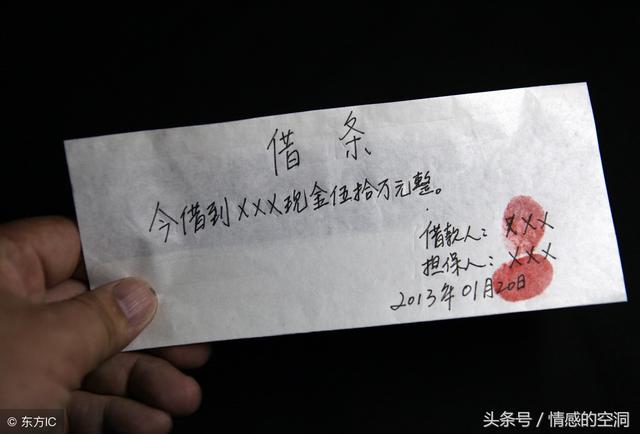 借条
今借到XXX现金伍拾万元整。
借款人：XXX
担保人：XXX
2013年01月20日
© 东方IC
头条号 / 情感的空洞